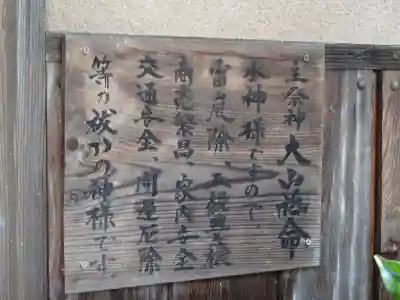 主祭神 大山祗命
水神様ですので、
雷危除、五穀豊穣
商売繁昌、家内安全
交通安全、開運厄除
等の祓いの神様です。